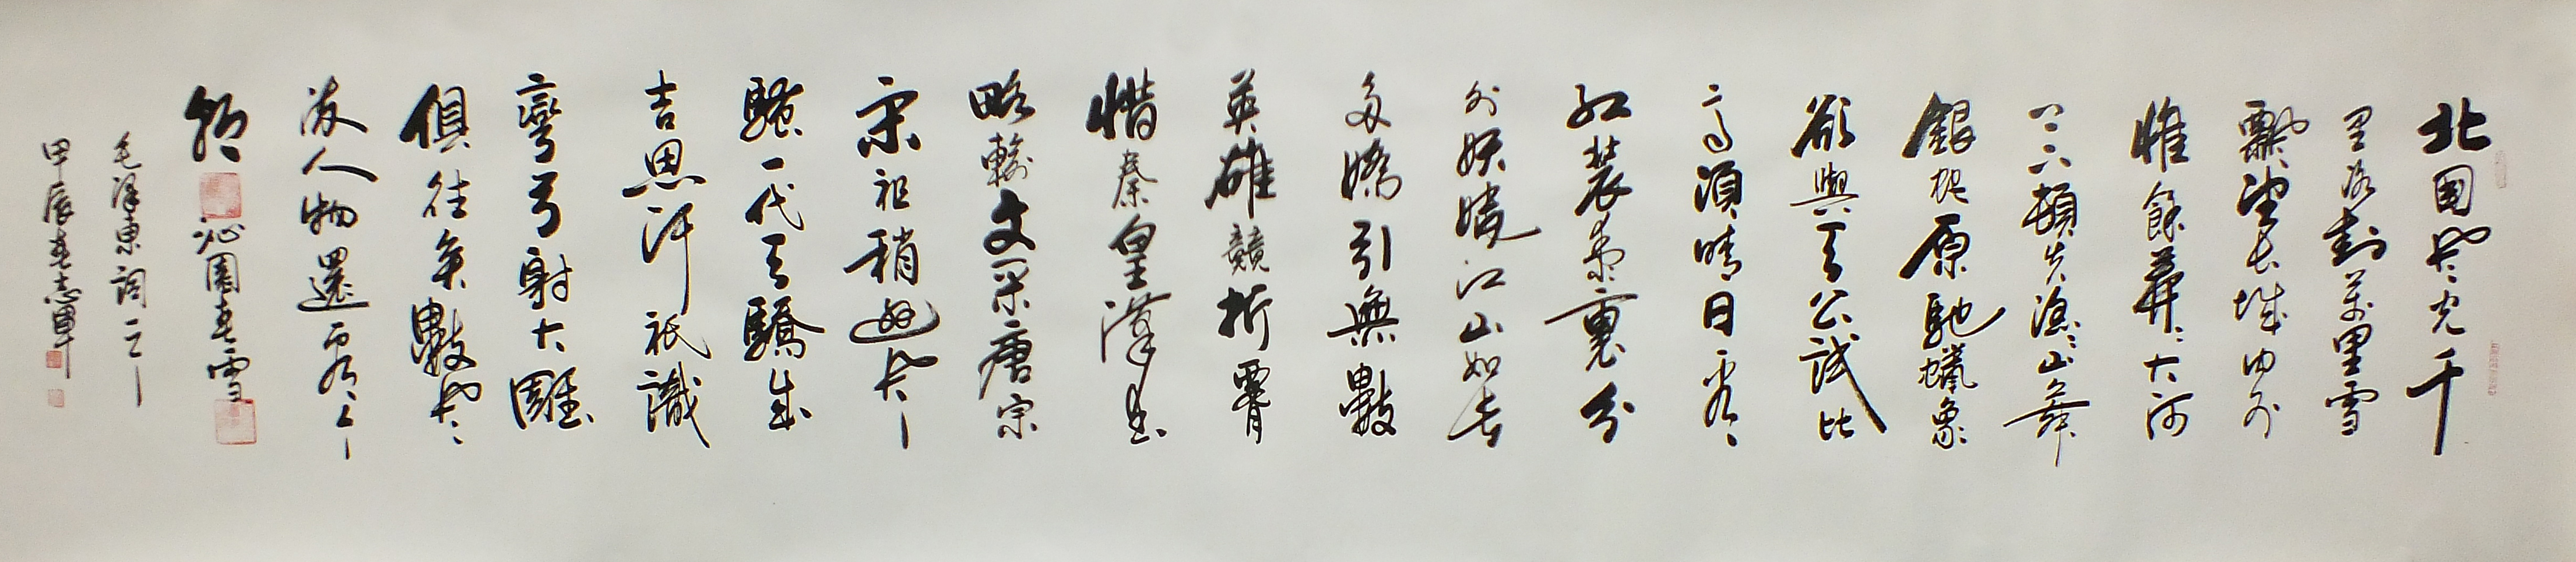 北國風光千
里冰封萬里雪
飄望長城内外
惟餘莽莽大河
上下頓失滔滔山舞
銀蛇原馳蠟象
欲與天公試比
高須晴日看
紅裝素裹分
外妖嬈江山如此
多嬌引無數
英雄競折腰
惜秦皇漢武
略輸文采唐宗
宋祖稍遜風
騷一代天驕成
吉思汗祇識
彎弓射大雕
俱往矣數風
流人物還看今
朝 沁園春雪
毛澤東詞一首
甲辰春志